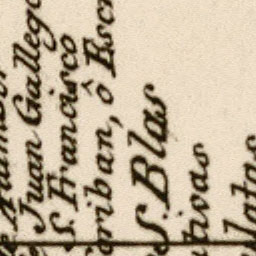 Juan Gallego
S. Francisco
oriban, ô Escr
S. Blas
tivas
latas